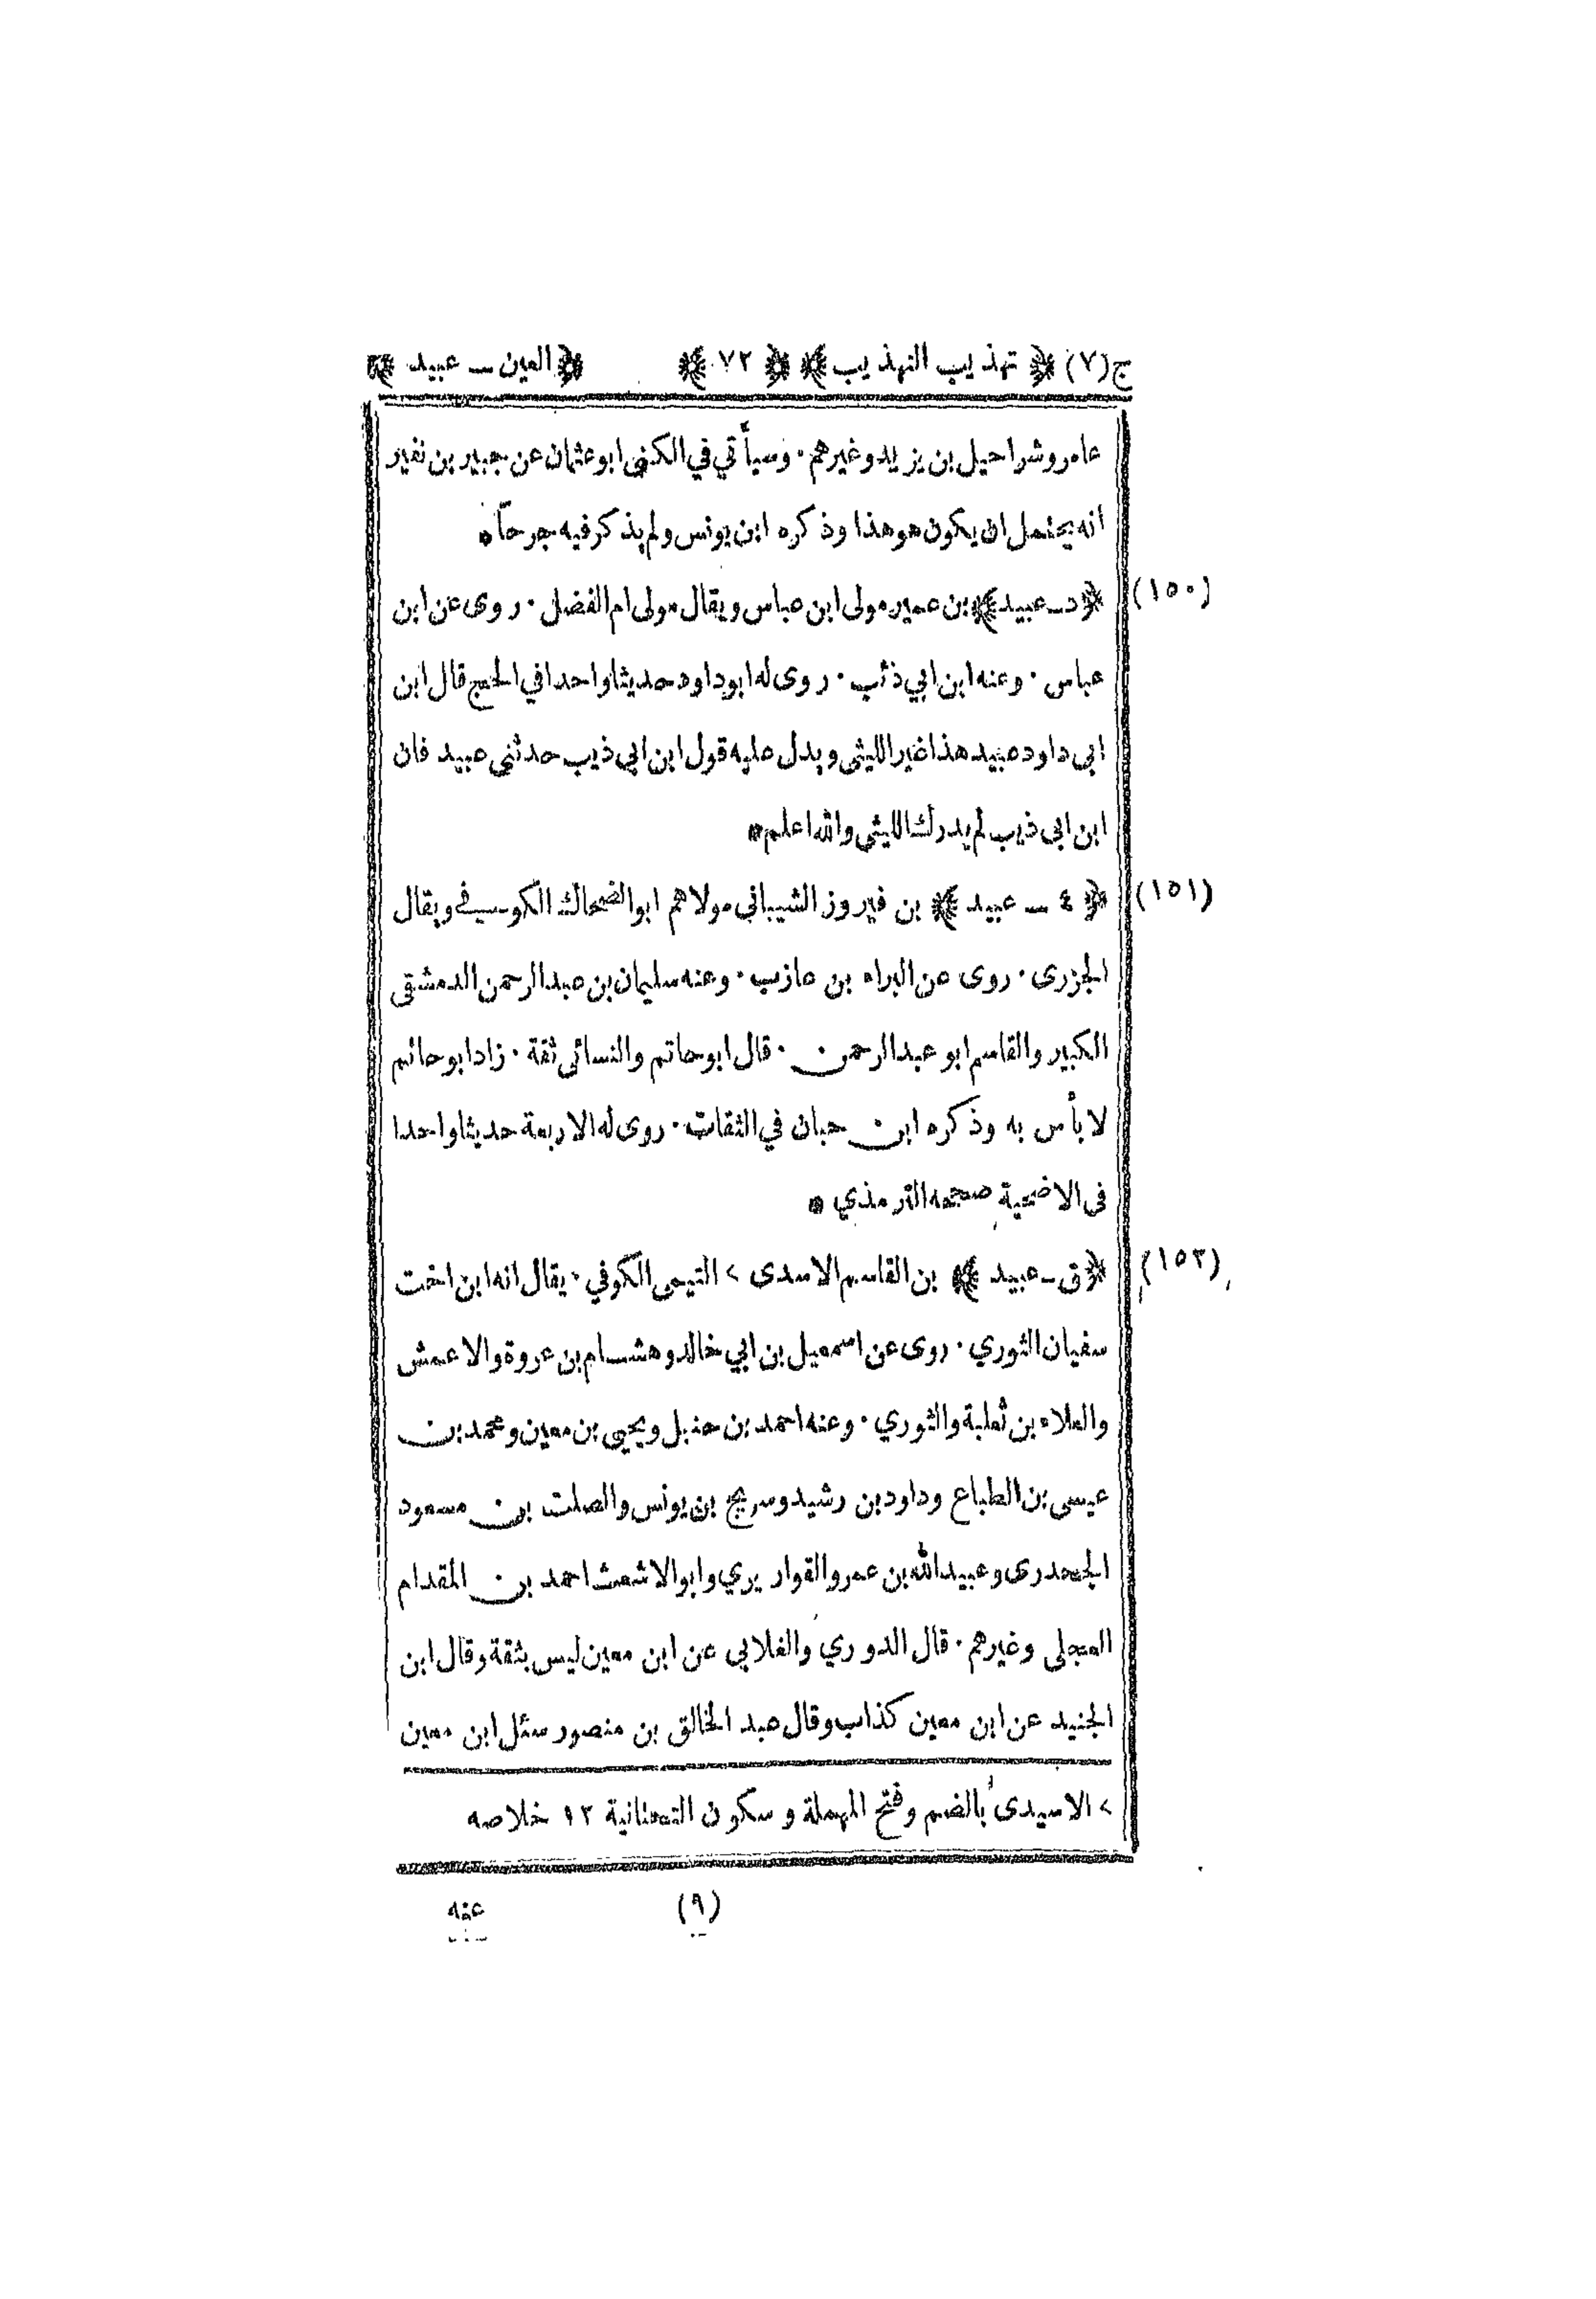 ج(٧) ﴿ تهذيب التهذيب ﴾ ﴿ ٧٢ ﴾ ﴿ العين ــ عبيد ﴾
عامر وشراحيل بن يزيد وغيرهم ٠ وسيأتي في الكنى ابو عثمان عن جبير بن نفير
انه يحتمل ان يكون هو هذا وذكره ابن يونس ولم يذكر فيه جرحاً *
(١٥٠) ﴿ د ــ عبيد ﴾ بن عمير مولى ابن عباس ويقال مولى ام الفضل ٠ روى عن ابن
عباس ٠ وعنه ابن ابي ذئب ٠ روى له ابو داود حديثا واحدا في الحج قال ابن
ابي داود عبيد هذا غير الليثي ويدل عليه قول ابن ابي ذيب حدثني عبيد فان
ابن ابي ذيب لم يدرك الليثي والله اعلم *
(١٥١) ﴿ ٤ ــ عبيد ﴾ بن فيروز الشيباني مولاهم ابو الضحاك الكوفي ويقال
الجزرى ٠ روى عن البراء بن عازب ٠ وعنه سليمان بن عبد الرحمن الدمشقي
الكبير والقاسم ابو عبد الرحمن ٠ قال ابو حاتم والنسائي ثقة ٠ زاد ابو حاتم
لا بأس به وذكره ابن حبان في الثقات ٠ روى له الاربعة حديثا واحدا
في الاضحية صححه الترمذي *
(١٥٢) ﴿ ق ــ عبيد ﴾ بن القاسم الاسدى > التيمي الكوفي ٠ يقال انه ابن اخت
سفيان الثوري ٠ روى عن اسمعيل بن ابي خالد وهشام بن عروة والاعمش
والعلاء بن ثعلبة والثوري ٠ وعنه احمد بن حنبل ويحيى بن معين ومحمد بن
عيسى بن الطباع وداود بن رشيد وسريج بن يونس والصلت بن مسعود
الجحدرى وعبيد الله بن عمر والقواريري وابو الاشعث احمد بن المقدام
العجلى وغيرهم ٠ قال الدوري والغلابي عن ابن معين ليس بثقة وقال ابن
الجنيد عن ابن معين كذاب وقال عبد الخالق بن منصور سئل ابن معين
> الاسيدى بالضم وفتح المهملة و سكون التحتانية ١٢ خلاصه
(٩) عنه